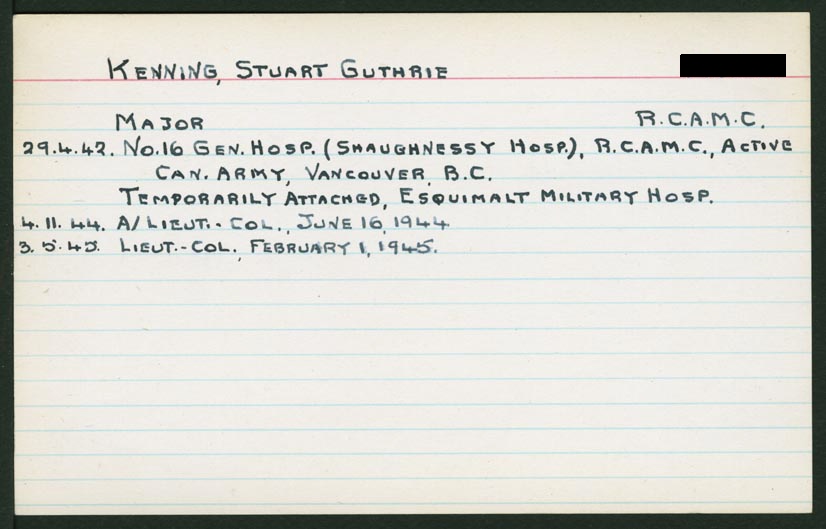 KENNING, STUART GUTHRIE
MAJOR R.C.A.M.C.
29.4.42. NO.16 GEN. HOSP. (SHAUGHNESSY HOSP.), R.C.A.M.C., ACTIVE
CAN. ARMY, VANCOUVER, B.C.
TEMPORARILY ATTACHED, ESQUIMALT MILITARY HOSP.
4.11.44. A/LIEUT.-COL., JUNE 16, 1944
3.5.45. LIEUT.-COL., FEBRUARY 1, 1945.